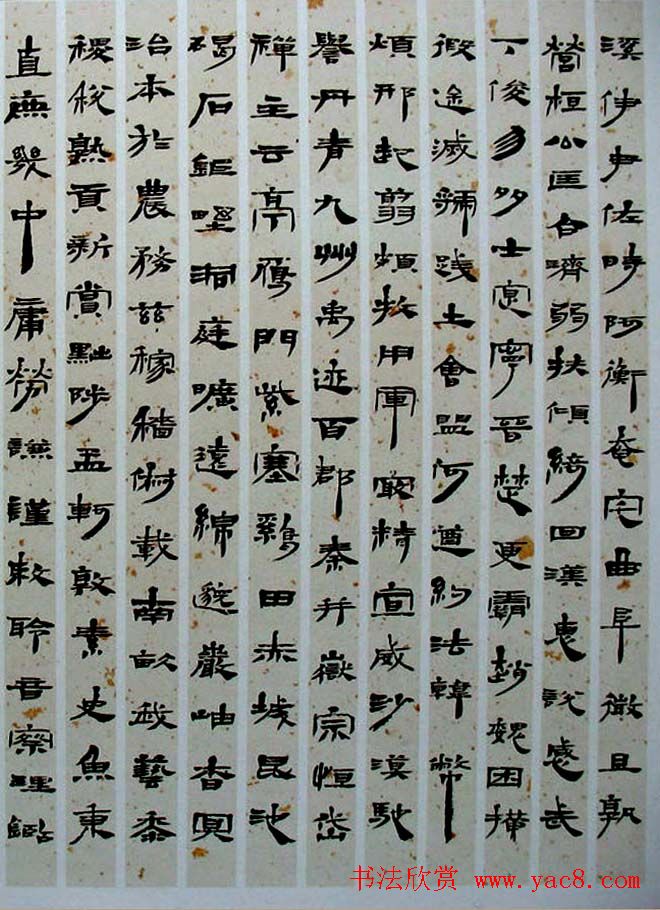 溪伊尹佐時阿衡奄宅曲阜微旦孰
營桓公匡合濟弱扶傾綺回漢惠說感武
丁俊乂多士寔寧晉楚更霸趙魏困橫
假途滅虢踐土會盟何遵約法韓幣
煩刑起翦頗牧用軍最精宣威沙漠馳
譽丹青九州禹迹百郡秦并嶽宗恒岱
禪主云亭鴈門紫塞鷄田赤城昆池
碣石鉅野洞庭曠遠綿邈巖岫杳冥
治本於農務茲稼穡俶載南畝我藝黍
稷稅熟貢新賞黜陟孟軻敦素史魚秉
直庶幾中庸勞謙謹敕聆音察理鑑
书法欣赏 www.yac8.com